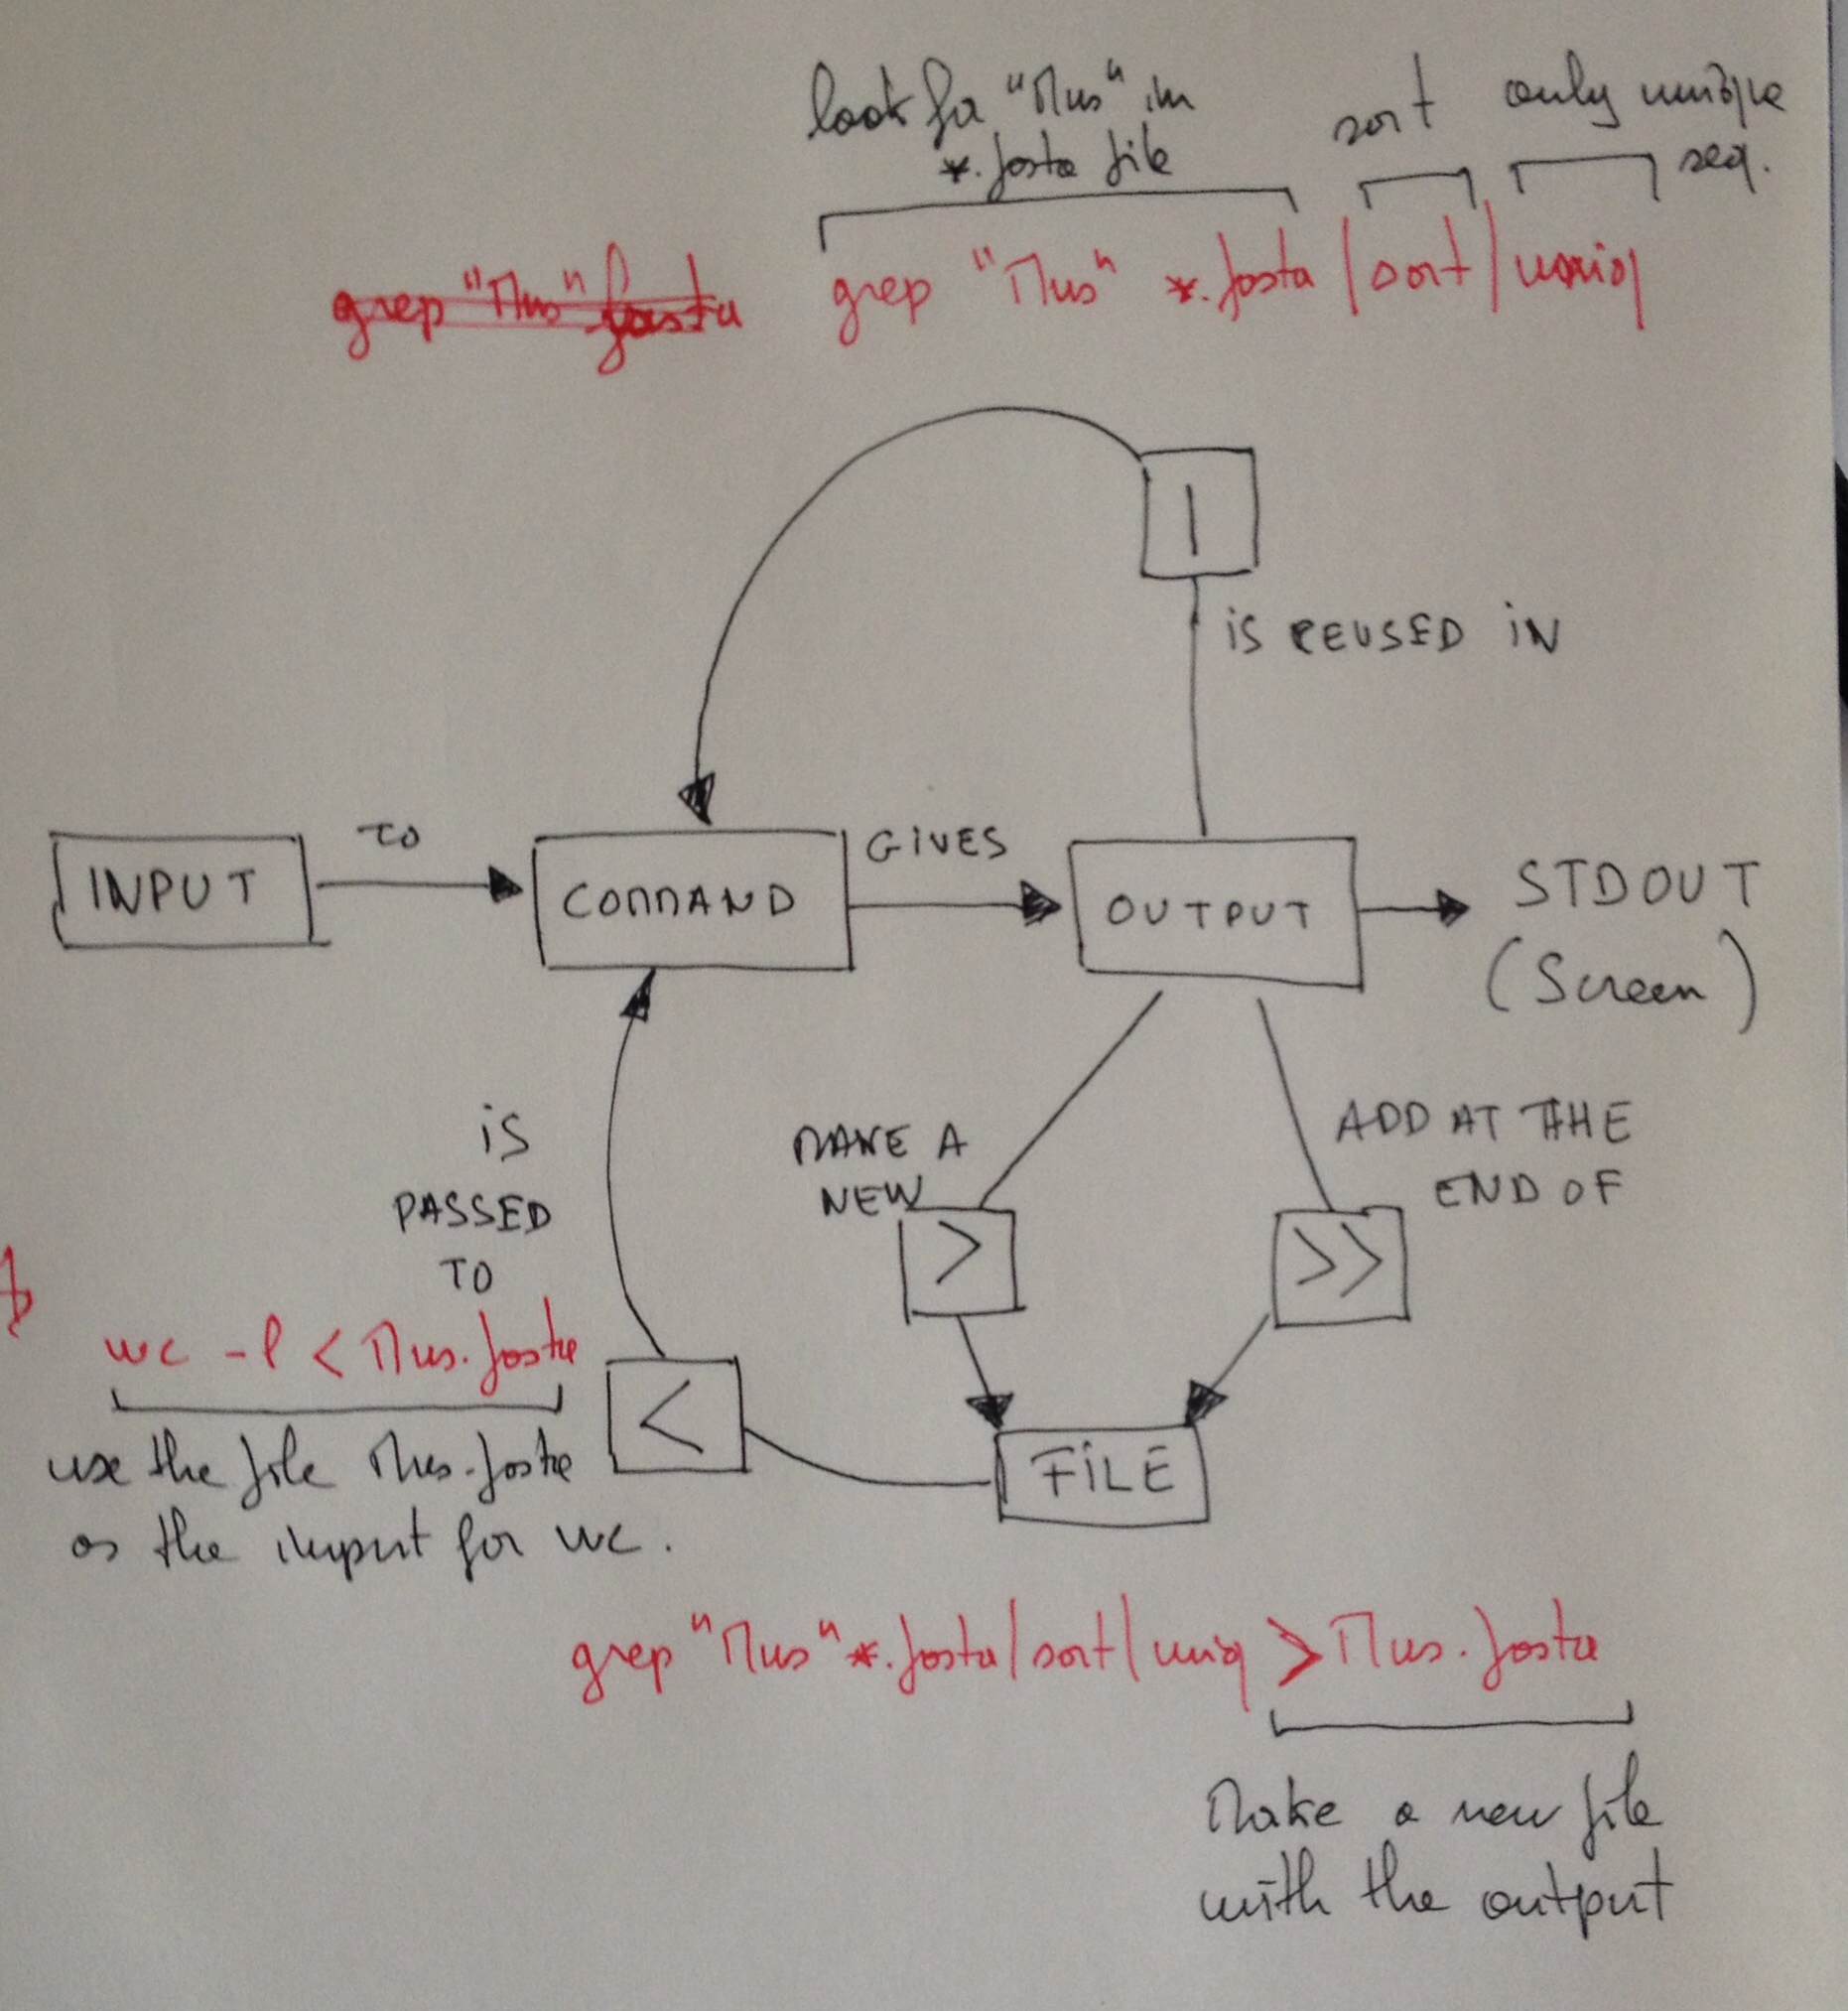 look for "Mus" in
*.fasta file
sort
only unique
seq.
grep "Mus" fasta
grep "Mus" *.fasta | sort | uniq
|
IS REUSED IN
INPUT
TO
COMMAND
GIVES
OUTPUT
STDOUT
(Screen)
IS
PASSED
TO
MAKE A
NEW
>
ADD AT THE
END OF
>>
wc -l < Mus.fasta
<
use the file Mus.fasta
as the input for wc.
FILE
grep "Mus" *.fasta | sort | uniq > Mus.fasta
Make a new file
with the output